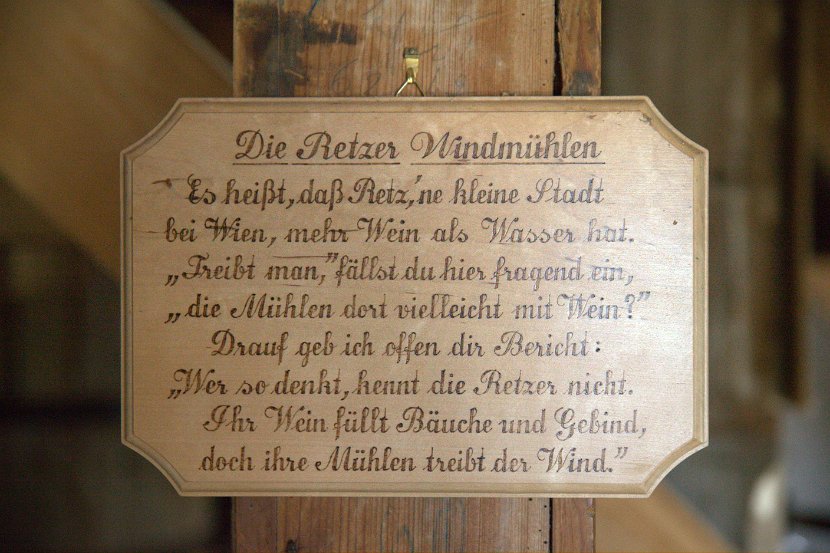 Die Retzer Windmühlen
Es heißt, daß Retz, 'ne kleine Stadt
bei Wien, mehr Wein als Wasser hat.
„Treibt man,” fällst du hier fragend ein,
„die Mühlen dort vielleicht mit Wein?”
Drauf geb ich offen dir Bericht:
„Wer so denkt, kennt die Retzer nicht.
Ihr Wein füllt Bäuche und Gebind,
doch ihre Mühlen treibt der Wind.”